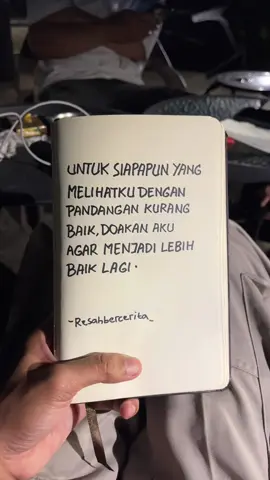 UNTUK SIAPAPUN YANG
MELIHATKU DENGAN
PANDANGAN KURANG
BAIK, DOAKAN AKU
AGAR MENJADI LEBIH
BAIK LAGI.
-Resahbercerita_